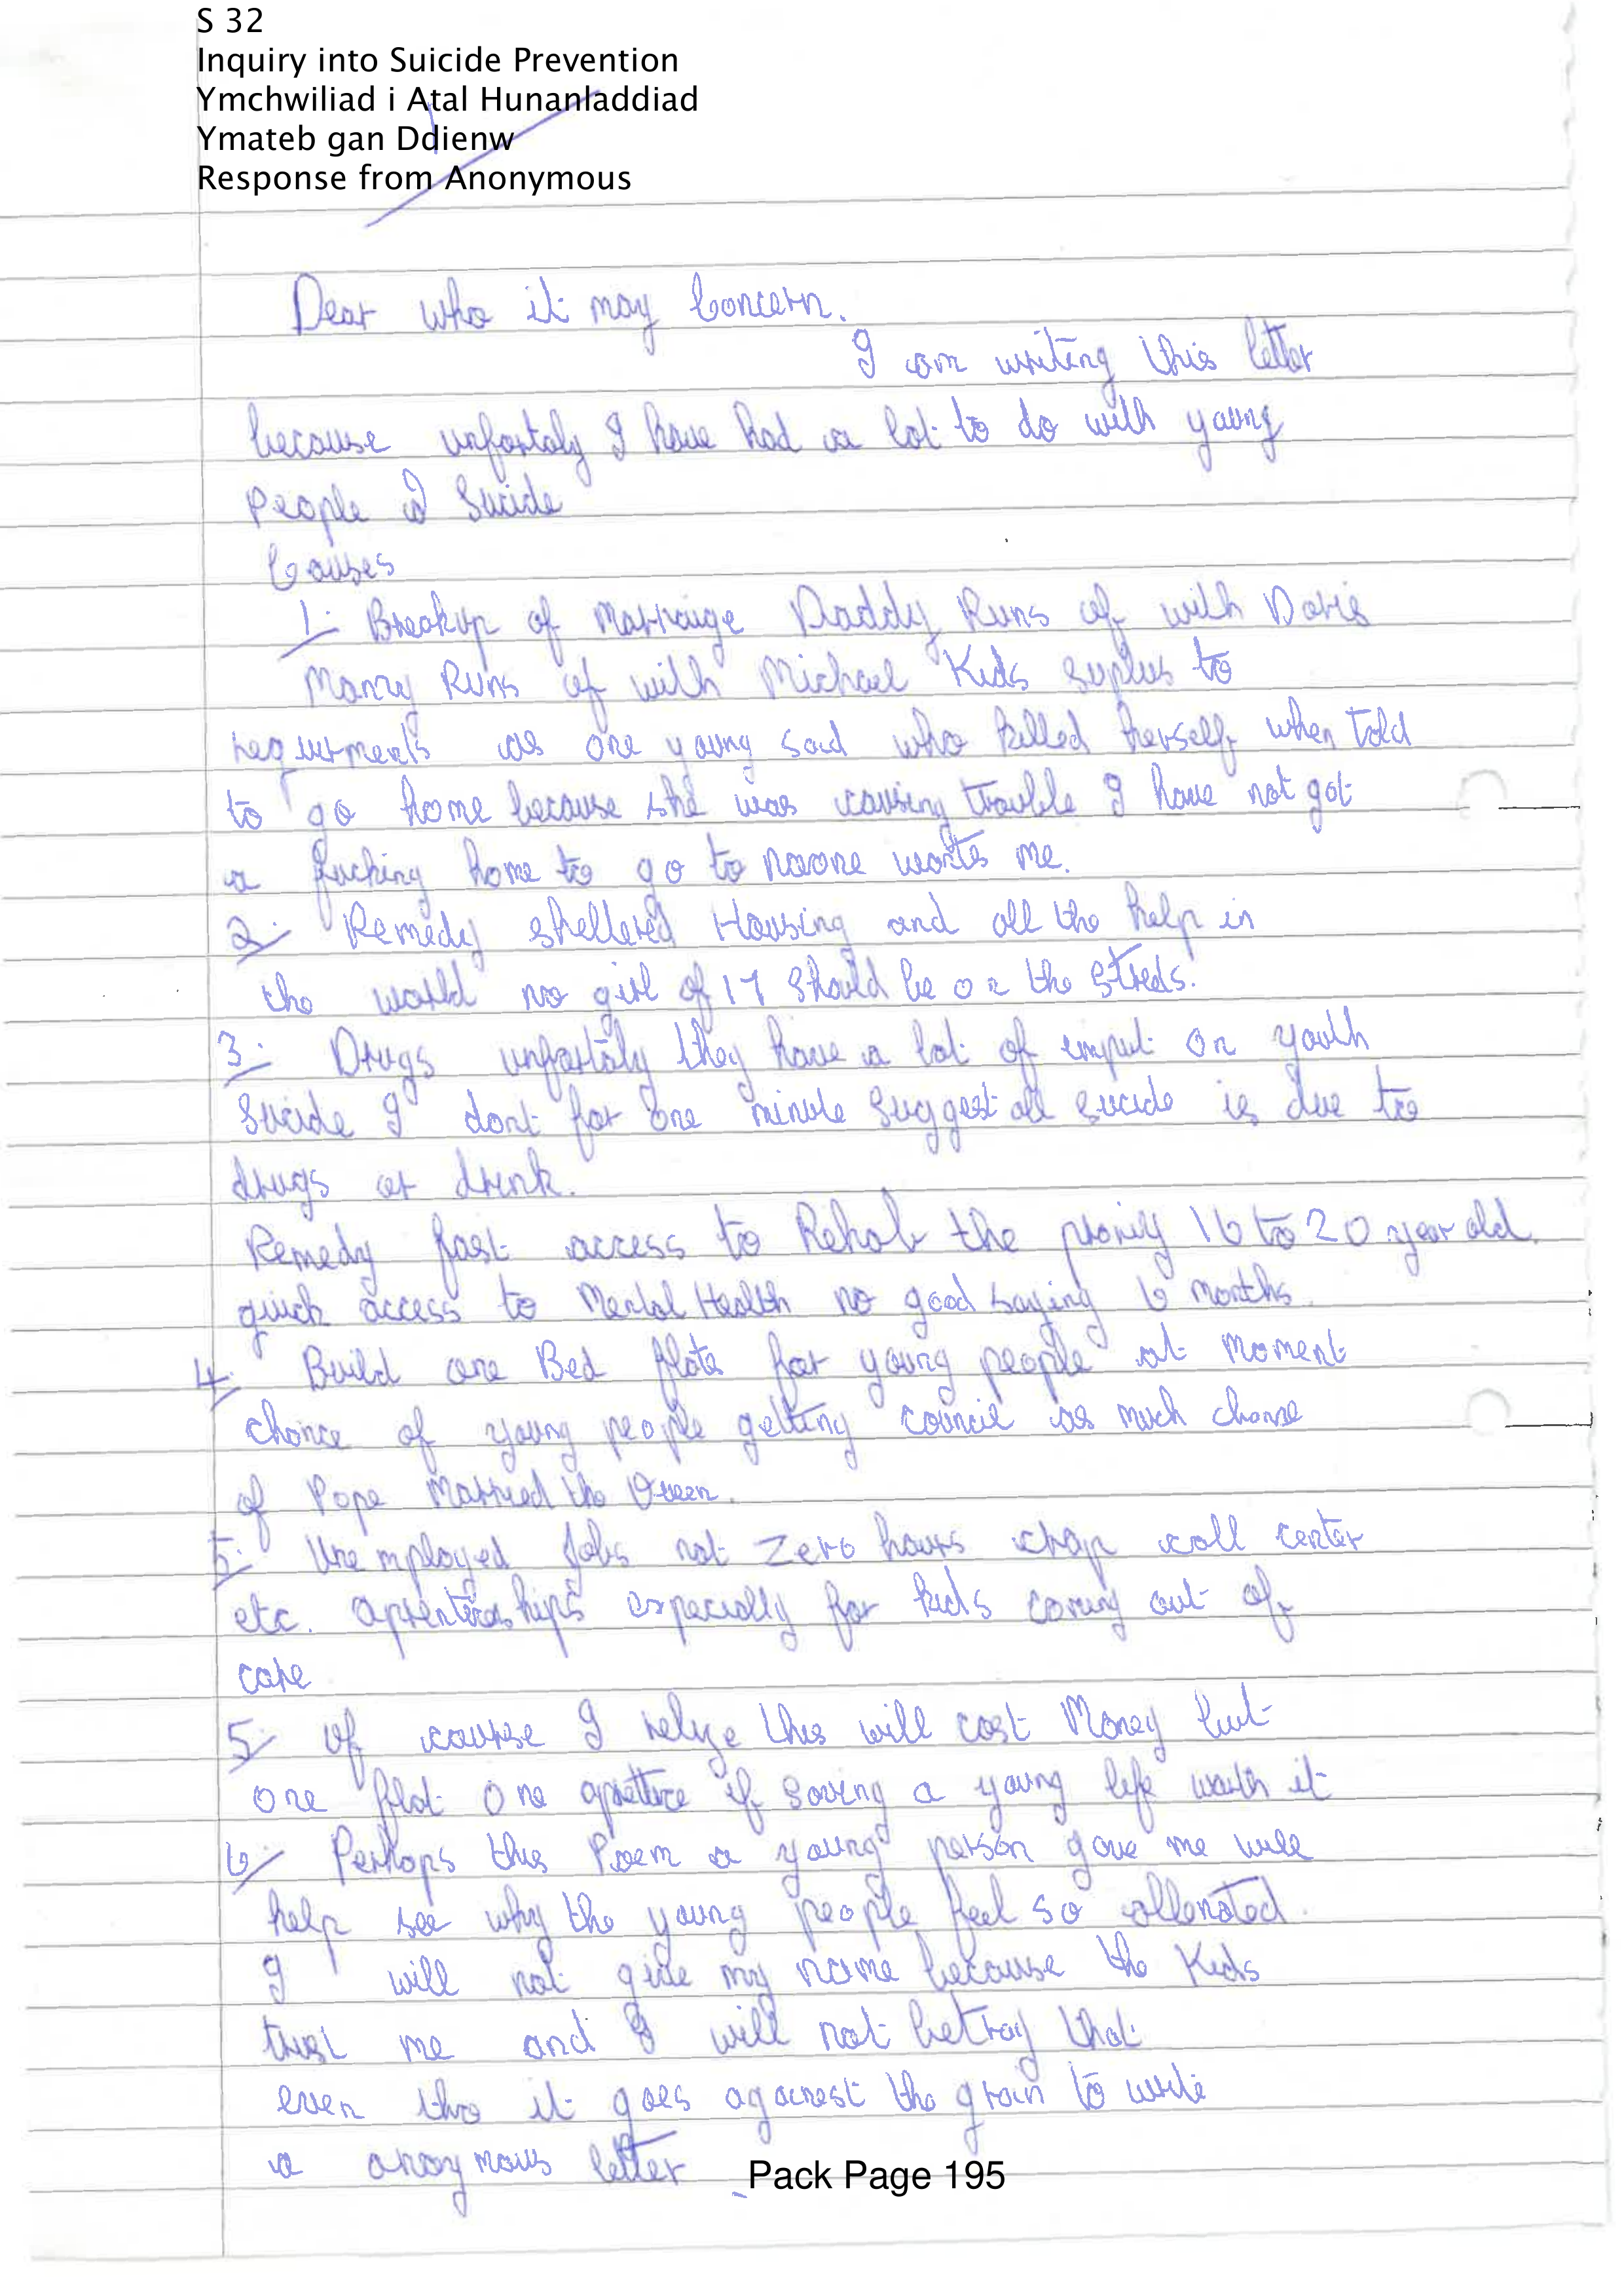 S 32
Inquiry into Suicide Prevention
Ymchwiliad i Atal Hunanladdiad
Ymateb gan Ddienw
Response from Anonymous
Dear who it may Concern.
I am writing this letter
because unfortaly I have had a lot to do with young
People & Suicide
Causes
1. Breakup of Marraige Daddy Runs of with Doris
Mamy Runs of with Michael Kids suplus to
requirments as one young said who killed herself when told
to go home because she was causing trouble I have not got
a fucking home to go to noone wants me.
2. Remedy sheltered Housing and all the help in
the world no girl of 17 should be on the streds.
3. Drugs unfortaly they have a lot of imput on youth
Suicide I dont for one minute suggest all sucide is due to
drugs or drink.
Remedy fast access to Rehab the priority 16 to 20 year old.
quick access to Mental Health no good saying 6 months.
4. Build one Bed flats for young people at moment
chance of young people getting council as much chance
of Pope Married the Queen.
5. Unemployed Jobs not zero hours cheap call center
etc. aprenticeships especially for kids coming out of
care
5. of course I relize this will cost Money but
one flat one if saving a young life worth it
6. Perhaps this Poem a young person gave me will
help see why the young people feel so allenated.
I will not give my name because the Kids
trust me and I will not betray that
even tho it goes against the grain to write
a anoymous letter
Pack Page 195